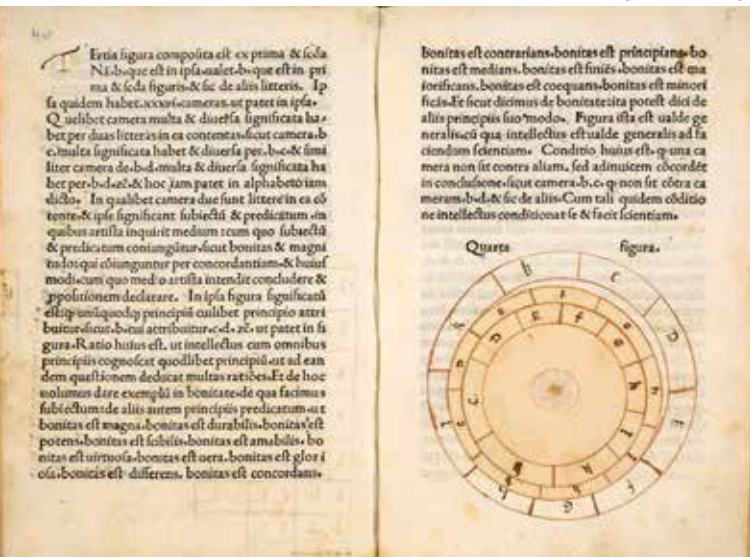 Ertia figura composita est ex prima & scda
N.E.b.que est in ipsa.ualet.b.que est in pri
ma & scda figuris.& sic de aliis litteris. Ip
sa quidem habet.xxxvi.cameras.ut patet in ipsa.
Quelibet camera multa & diuersa significata ha
bet per duas litteras in ea contentas.sicut camera.b
c.multa significata habet & diuersa per.b.c.& simi
liter camera de.b.d.multa & diuersa significata ha
bet per.b.d.&c. & hoc iam patet in alphabeto iam
dicto. In qualibet camera due sunt littere in ea cō
tente.& ipse significant subiectū & predicatum.in
quibus artista inquirit medium:cum quo subiectū
& predicatum coniungūtur.sicut bonitas & magni
tudo:qui cōiunguntur per concordantiam.& huius
modi.cum quo medio artista intendit concludere &
ppositionem declarare. In ipsa figura significatū
est:q unūquodq principiū cuilibet principio attri
buitur.sicut.b.cui attribuitur.c.d. &c. ut patet in fi
gura.Ratio huius est. ut intellectus cum omnibus
principiis cognoscat quodlibet principiū.ut ad ean
dem questionem deducat multas ratiōes.Et de hoc
uolumus dare exemplū in bonitate.de qua facimus
subiectum:de aliis autem principiis predicatum.ut
bonitas est magna.bonitas est durabilis.bonitas est
potens.bonitas est scibilis.bonitas est amabilis. bo
nitas est uirtuosa.bonitas est uera.bonitas est glori
osa.bonitas est differens. bonitas est concordans.
bonitas est contrarians.bonitas est principians.bo
nitas est medians. bonitas est finiēs.bonitas est ma
iorificans. bonitas est coequans.bonitas est minori
ficās.Et sicut dicimus de bonitate:ita potest dici de
aliis principiis suo modo. Figura ista est ualde ge
neralis.cū qua intellectus est ualde generalis ad fa
ciendum scientiam. Conditio huius est.q una ca
mera non sit contra aliam. sed adinuicem cōcordēt
in conclusione.sicut camera.b.c.q non sit cōtra ca
meram.b.d.& sic de aliis.Cum tali quidem cōditio
ne intellectus conditionat se & facit scientiam.
Quarta figura.